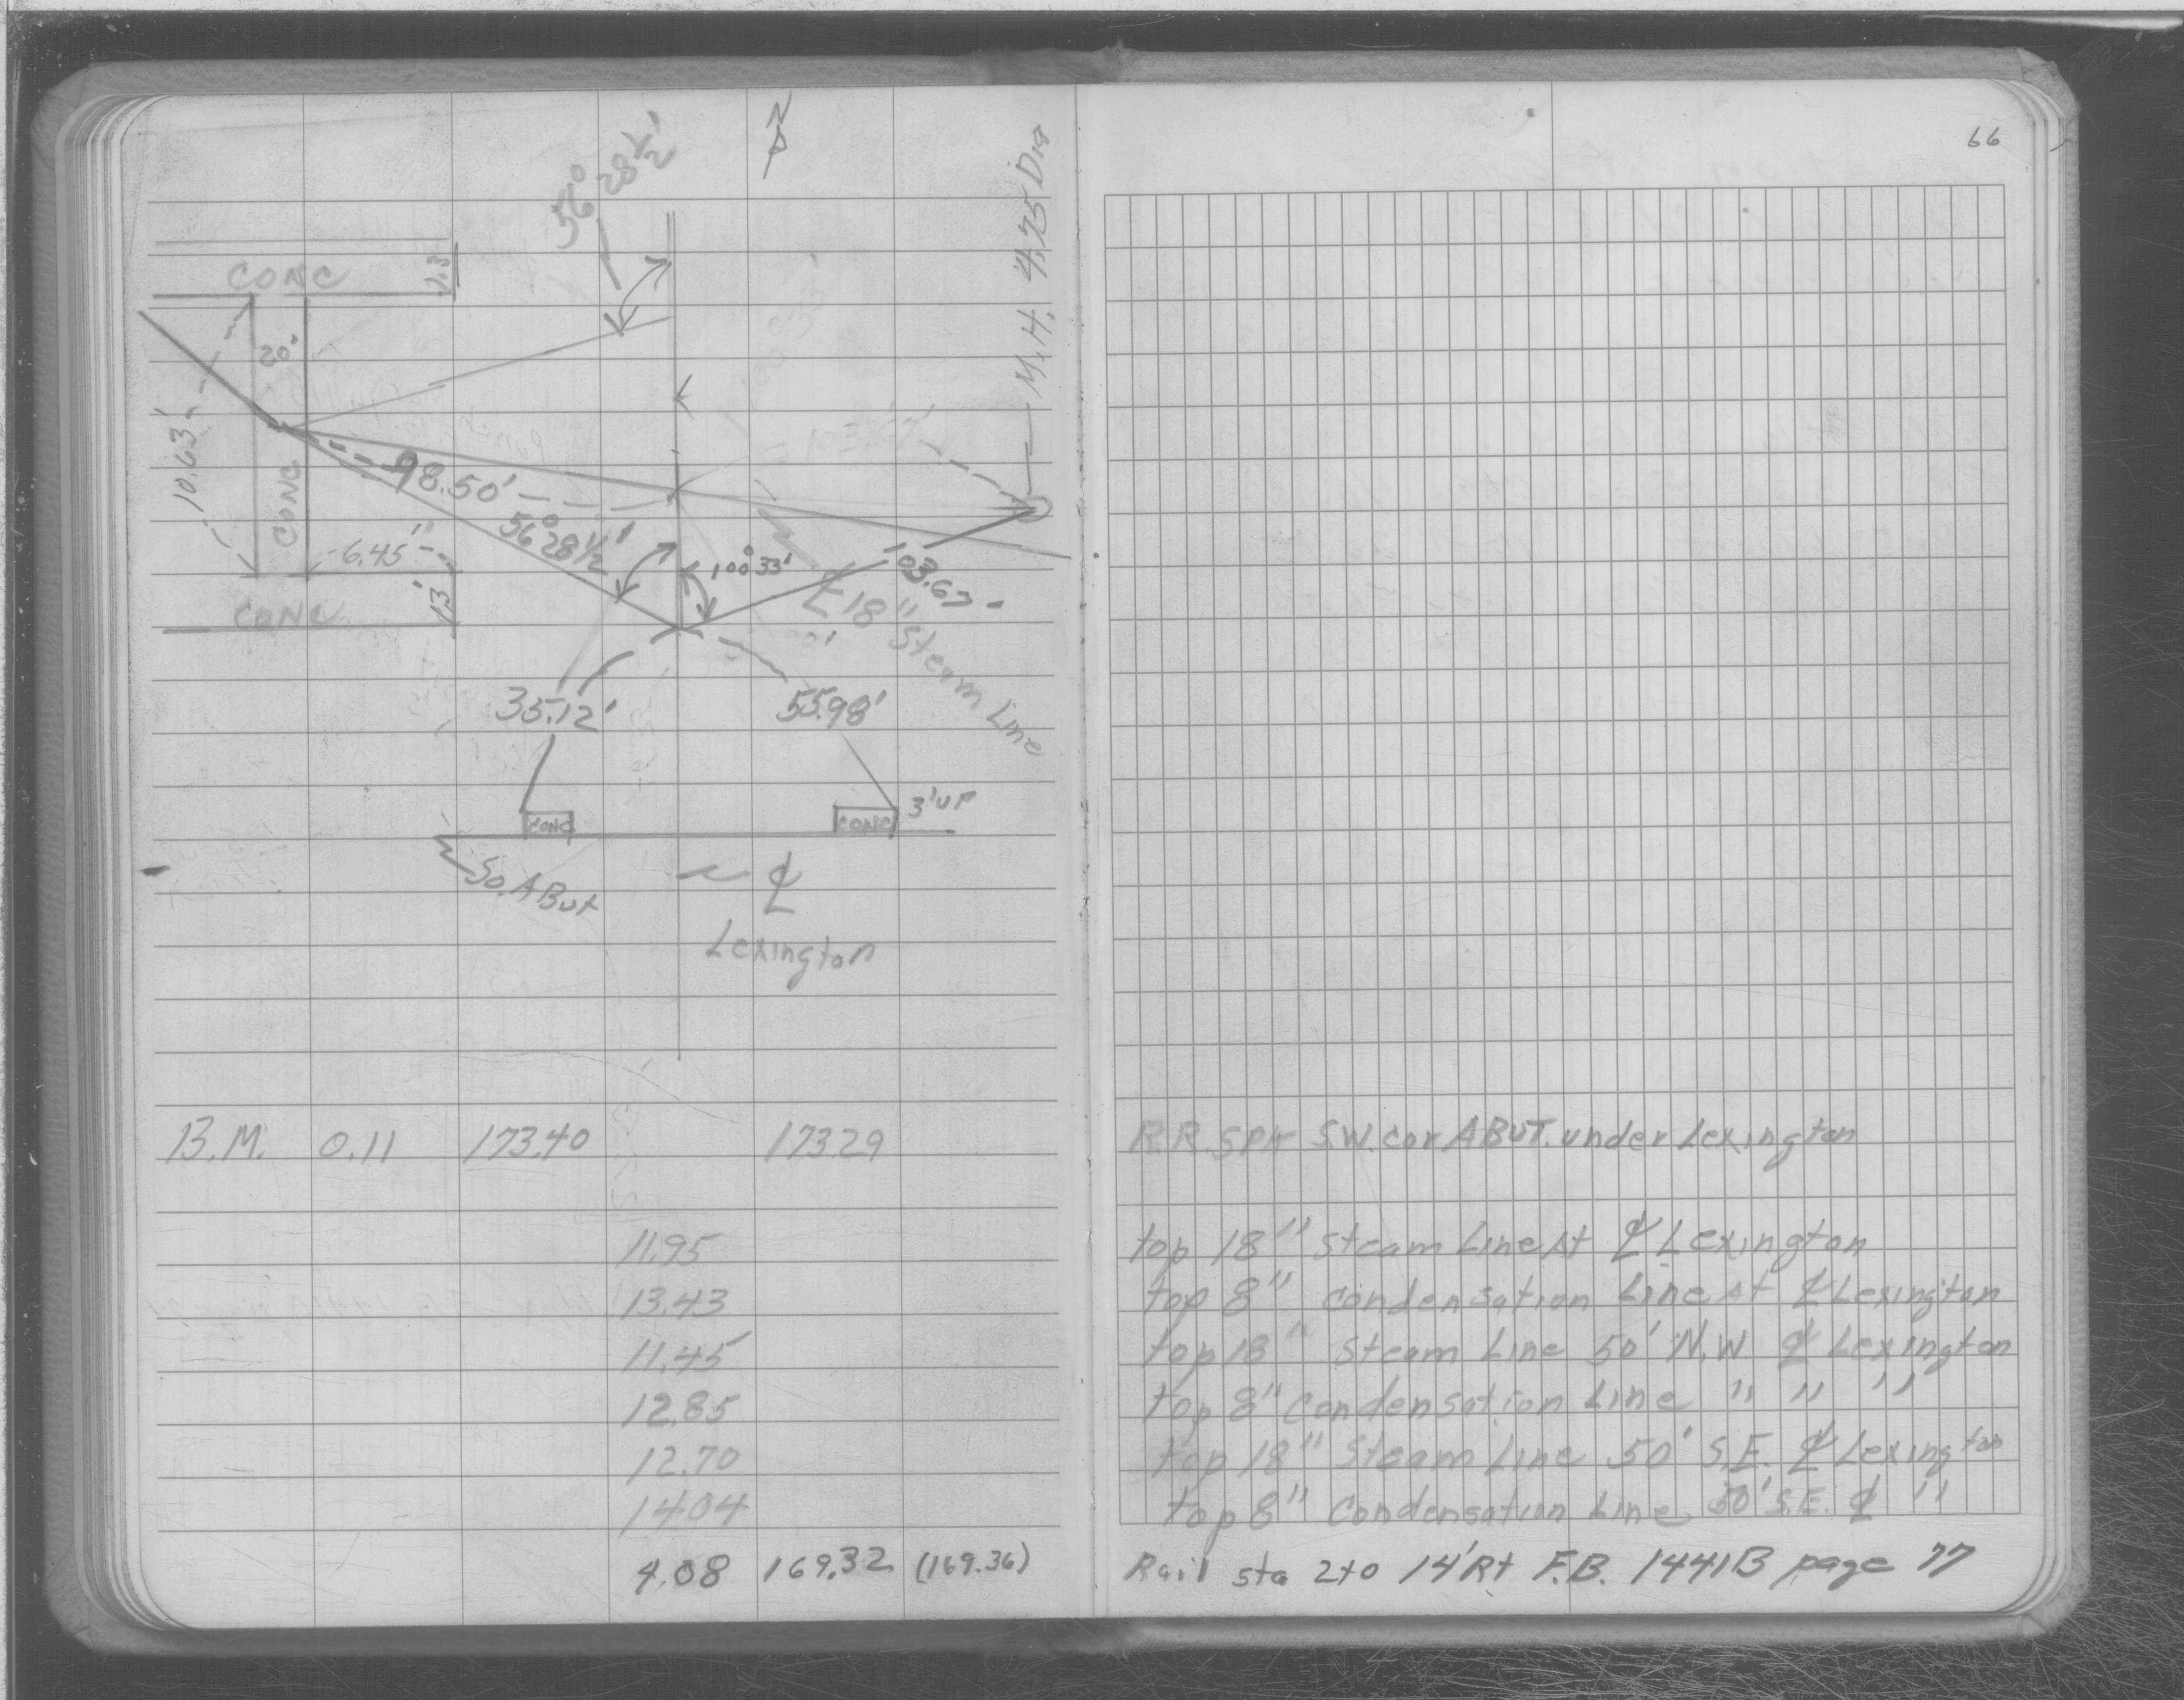 66
N
56° 28½'
M.H. 4.75 Dia
CONC
1.3'
20°
10.63'
CONC
98.50'
103.67'
56° 28½'
100° 33'
103.67'
6.45'
1.3'
CONC
℄ 18" Steam Line
35.12'
55.98'
CONC
CONC
3' UP
So. ABut
℄
Lexington
B.M. 0.11 173.40 173.29 R.R. SPK S.W. cor ABUT. under Lexington
11.95 top 18" Steam Line At ℄ Lexington
13.43 top 8" Condensation Line At ℄ Lexington
11.45 top 18" Steam Line 50' N.W ℄ Lexington
12.85 top 8" Condensation Line " " "
12.70 top 18" Steam Line 50' S.E. ℄ Lexington
14.04 top 8" Condensation Line 50' S.E. ℄ "
4.08 169.32 (169.36) Rail sta 2+0 14' Rt F.B. 1441B page 77